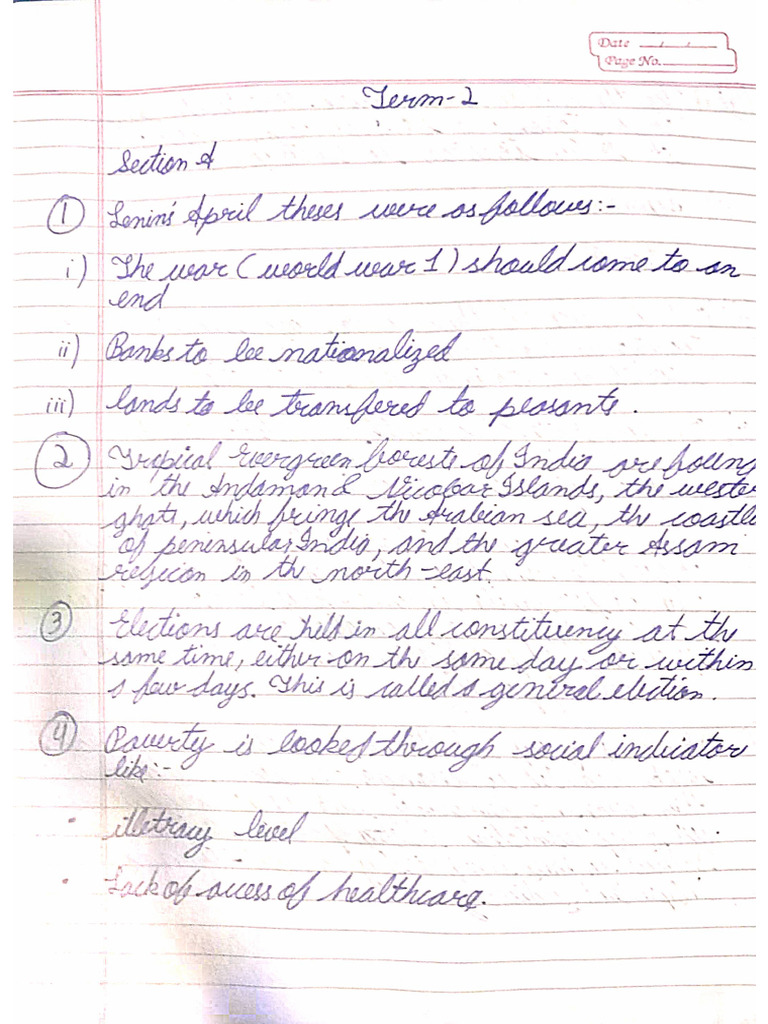 Date __/__/__
Page No.
Term-2
Section A
1 Lenin's April theses were as follows:-
i) The war (world war 1) should come to an
end
ii) Banks to be nationalized
iii) lands to be transfered to peasants.
2 Tropical Evergreen forests of India are foun
in the Andaman & Nicobar Islands, the weste
ghats, which fringe the Arabian sea, the coastle
of peninsular India, and the greater Assam
region in the north-east.
3 Elections are held in all constituency at the
same time, either on the same day or within
a few days. This is called a general election.
4 Poverty is looked through social indicator
like:-
• illetracy level
• Lack of access of healthcare.